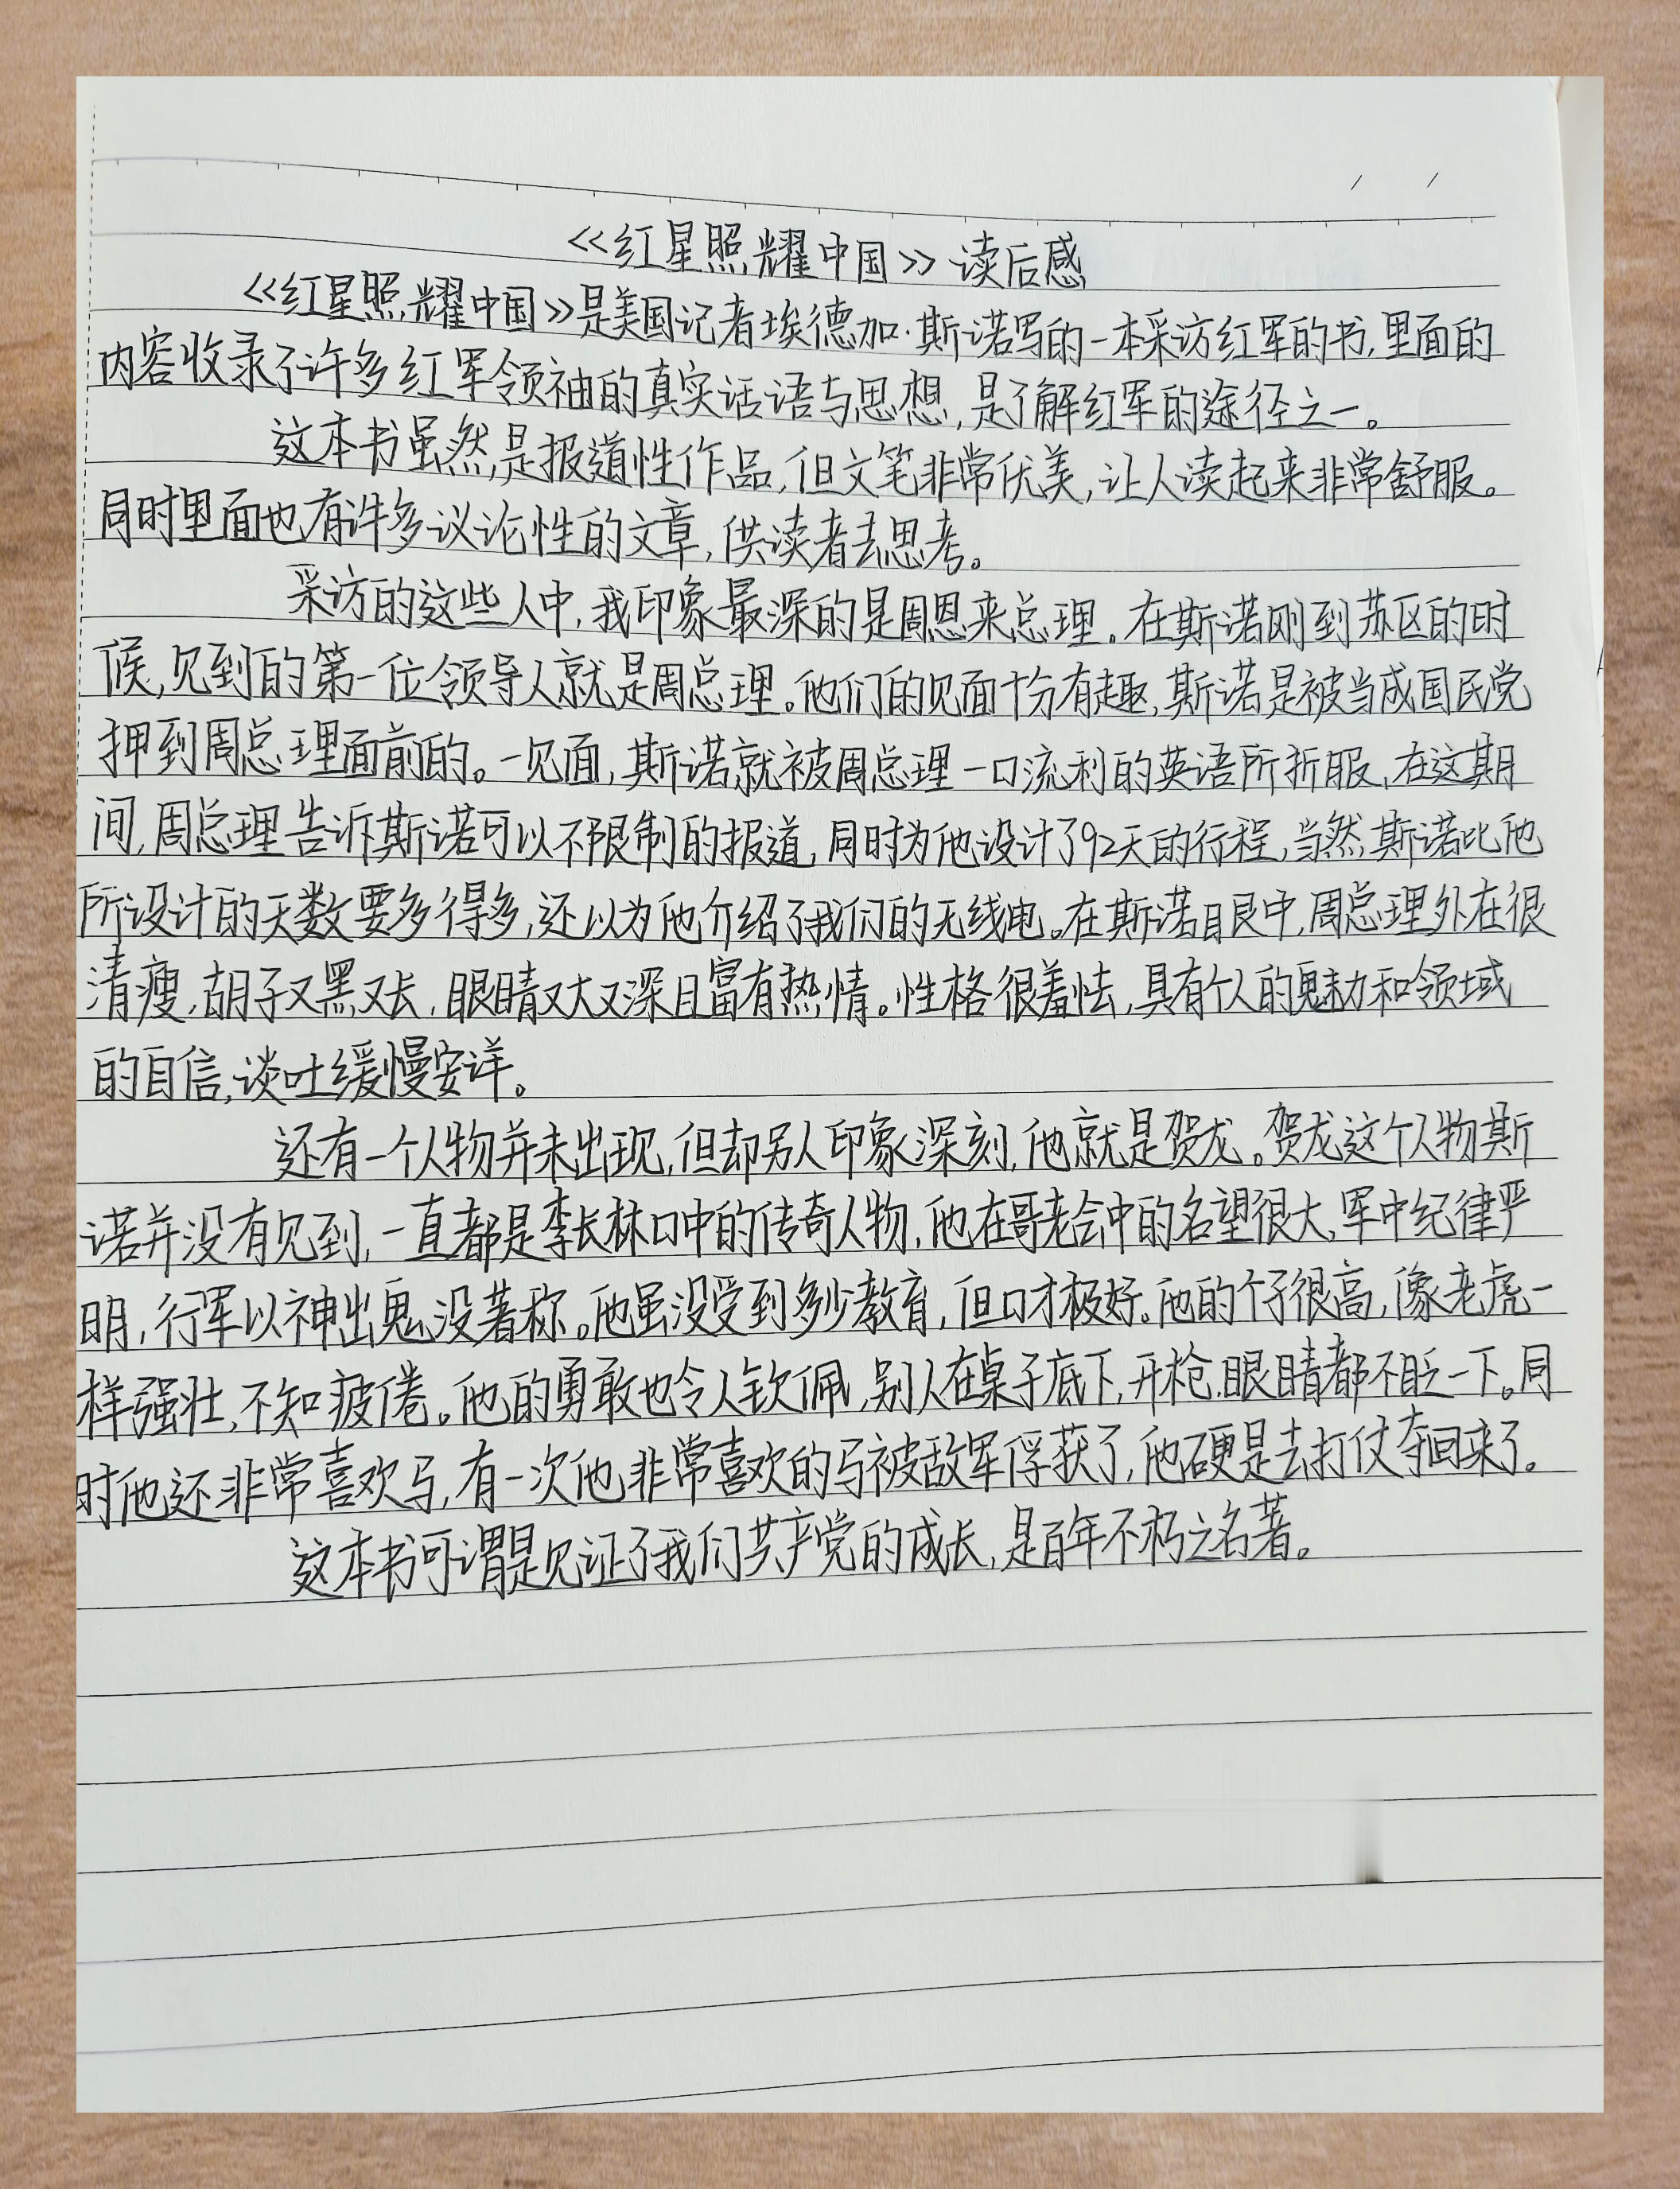 《红星照耀中国》读后感
《红星照耀中国》是美国记者埃德加·斯诺写的一本采访红军的书,里面的
内容收录了许多红军领袖的真实话语与思想,是了解红军的途径之一。
这本书虽然是报道性作品,但文笔非常优美,让人读起来非常舒服。
同时里面也有许多议论性的文章,供读者去思考。
采访的这些人中,我印象最深的是周恩来总理。在斯诺刚到苏区的时
候,见到的第一位领导人就是周总理。他们的见面十分有趣,斯诺是被当成国民党
押到周总理面前的。一见面,斯诺就被周总理一口流利的英语所折服,在这期
间,周总理告诉斯诺可以不限制的报道,同时为他设计了92天的行程,当然斯诺比他
所设计的天数要多得多,还以为他介绍了我们的无线电。在斯诺眼中,周总理外在很
清瘦,胡子又黑又长,眼睛又大又深且富有热情。性格很羞怯,具有个人的魅力和领域
的自信,谈吐缓慢安详。
还有一个人物并未出现,但却另人印象深刻,他就是贺龙。贺龙这个人物斯
诺并没有见到,一直都是李长林口中的传奇人物,他在哥老会中的名望很大,军中纪律严
明,行军以神出鬼没著称。他虽没受到多少教育,但口才极好。他的个子很高,像老虎一
样强壮,不知疲倦。他的勇敢也令人钦佩,别人在桌子底下,开枪,眼睛都不眨一下。同
时他还非常喜欢马,有一次他非常喜欢的马被敌军俘获了,他硬是去打仗夺回来了。
这本书可谓是见证了我们共产党的成长,是百年不朽之名著。